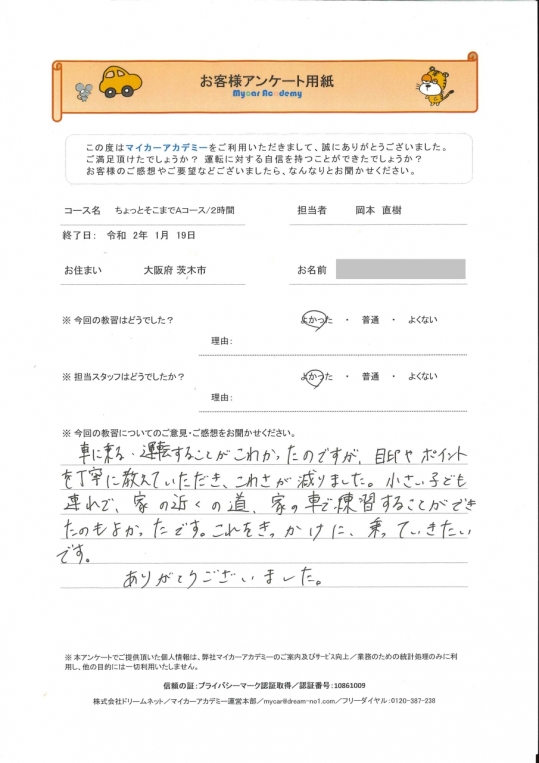 お客様アンケート用紙
Mycar Academy
この度はマイカーアカデミーをご利用いただきまして、誠にありがとうございました。
ご満足頂けたでしょうか？ 運転に対する自信を持つことができたでしょうか？
お客様のご感想やご要望などございましたら、なんなりとお聞かせください。
コース名 ちょっとそこまでAコース/2時間 担当者 岡本 直樹
終了日： 令和 2年 1月 19日
お住まい 大阪府 茨木市 お名前
※ 今回の教習はどうでした？ よかった ・ 普通 ・ よくない
理由：
※ 担当スタッフはどうでしたか？ よかった ・ 普通 ・ よくない
理由：
※ 今回の教習についてのご意見・ご感想をお聞かせください。
車に乗る・運転することがこわかったのですが、目印やポイント
を丁寧に教えていただき、こわさが減りました。小さい子ども
連れで、家の近くの道、家の車で練習することができ
たのもよかったです。これをきっかけに、乗っていきたい
です。
ありがとうございました。
※ 本アンケートでご提供頂いた個人情報は、弊社マイカーアカデミーのご案内及びサービス向上／業務のための統計処理のみに利
用し、他の目的には一切利用いたしません。
信頼の証：プライバシーマーク認証取得／認証番号：10861009
株式会社ドリームネット／マイカーアカデミー運営本部／mycar@dream-no1.com／フリーダイヤル：0120-387-238